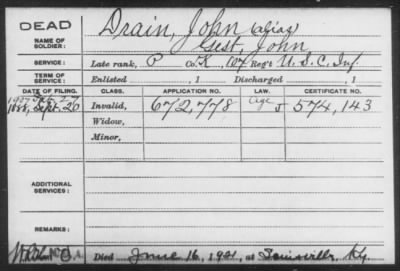 DEAD
NAME OF SOLDIER:
Drain, John (alias)
Gest, John
SERVICE:
Late rank, P Co. K, 107 Reg't U. S. C. Inf.
TERM OF SERVICE:
Enlisted , 1 Discharged , 1
DATE OF FILING. CLASS. APPLICATION NO. LAW. CERTIFICATE NO.
1907
1888, Sept. 20 Invalid, 672,778 Age J 574,143
Widow,
Minor,
ADDITIONAL SERVICES:
REMARKS:
Died June 16, 1921, at Louisville, Ky.